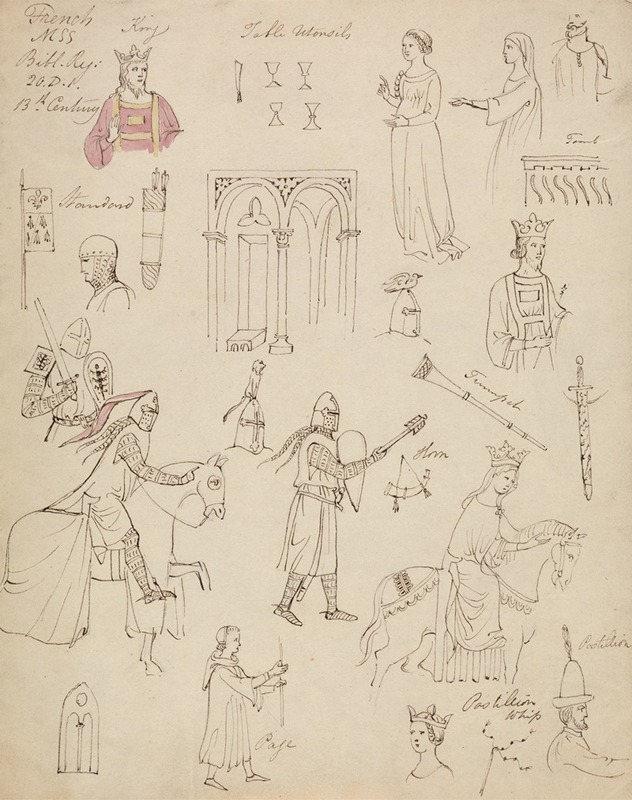 French
MSS
Bibl. Reg:
20. D. 1.
13th Century
King
Table Utensils
Tomb
Standard
Trumpet
Horn
Postillion
Postillion
Whip
Page